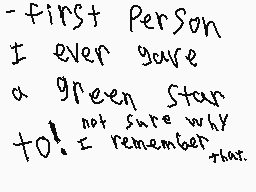 - first Person
I ever gave
a green star
to! not sure why
I remember
that.